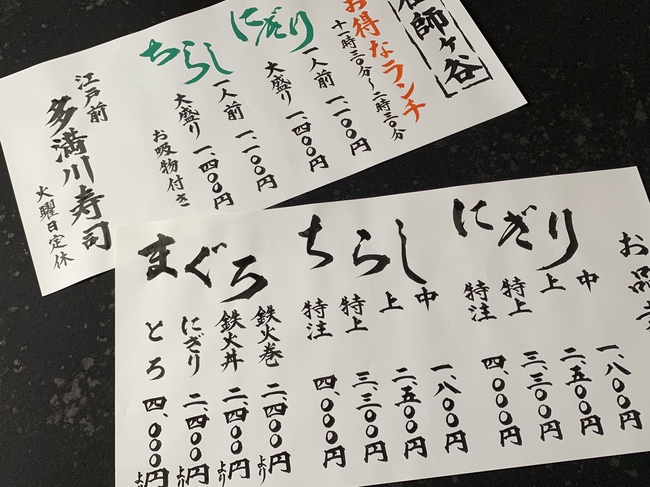 師ヶ谷
お得なランチ
十一時三〇分〜二時三〇分
にぎり
一人前 一、一〇〇円
大盛り 一、四〇〇円
ちらし
一人前 一、一〇〇円
大盛り 一、四〇〇円
お吸物付き
江戸前
多満川寿司
火曜日定休
お品
にぎり
中 一、八〇〇円
上 二、五〇〇円
特上 三、三〇〇円
特注 四、〇〇〇円
ちらし
中 一、八〇〇円
上 二、五〇〇円
特上 三、三〇〇円
特注 四、〇〇〇円
まぐろ
鉄火巻 二、四〇〇円より
鉄火丼 二、四〇〇円より
にぎり 二、四〇〇円より
とろ 四、〇〇〇円より